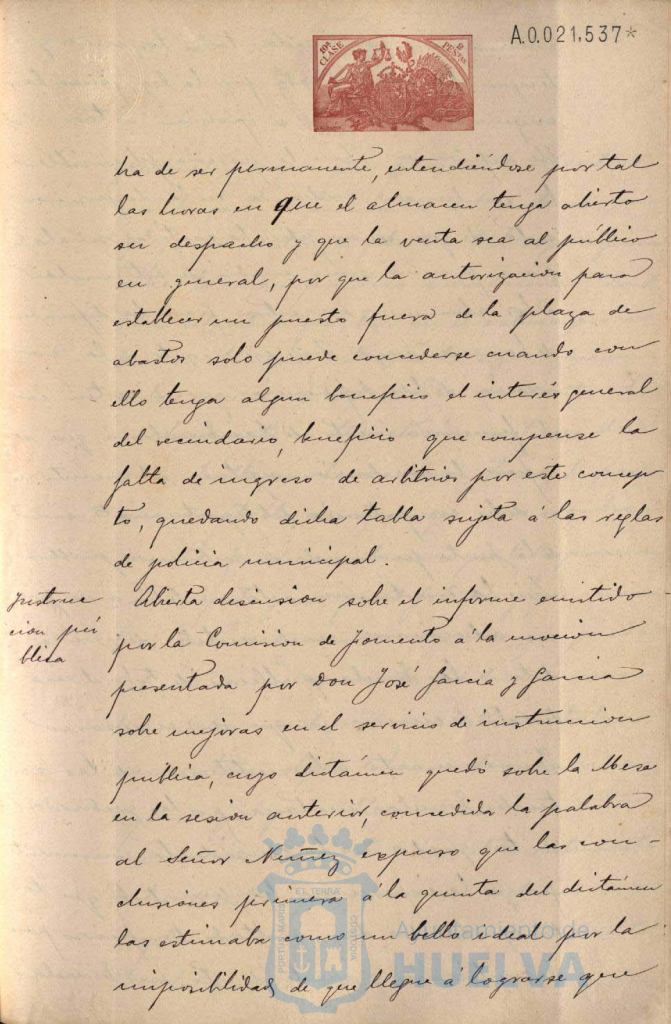 A.0.021,537*
10ª CLASE
2 PESETAS
ha de ser permanente, entendiéndose por tal
las horas en que el almacen tenga abierto
su despacho y que la venta sea al público
en general, por que la autorizacion para
establecer un puesto fuera de la plaza de
abastos solo puede concederse cuando con
ello tenga algun beneficio el interés general
del vecindario, beneficio que compense la
falta de ingreso de arbitrios por este concep
to, quedando dicha tabla sujeta á las reglas
de policia municipal.
Instruc
cion pú
blica
Abierta discusion sobre el informe emitido
por la Comision de Fomento á la mocion
presentada por Don José Garcia y Garcia
sobre mejoras en el servicio de instruccion
pública, cuyo dictámen quedó sobre la Mesa
en la sesion anterior, concedida la palabra
al Señor Nuñez expuso que las con-
clusiones primera á la quinta del dictámen
las estimaba como un bello ideal por la
imposibilidad de que llegue á lograrse que
PORTUS MARIS
ET TERRÆ
CUSTODIA
Ayuntamiento de
HUELVA